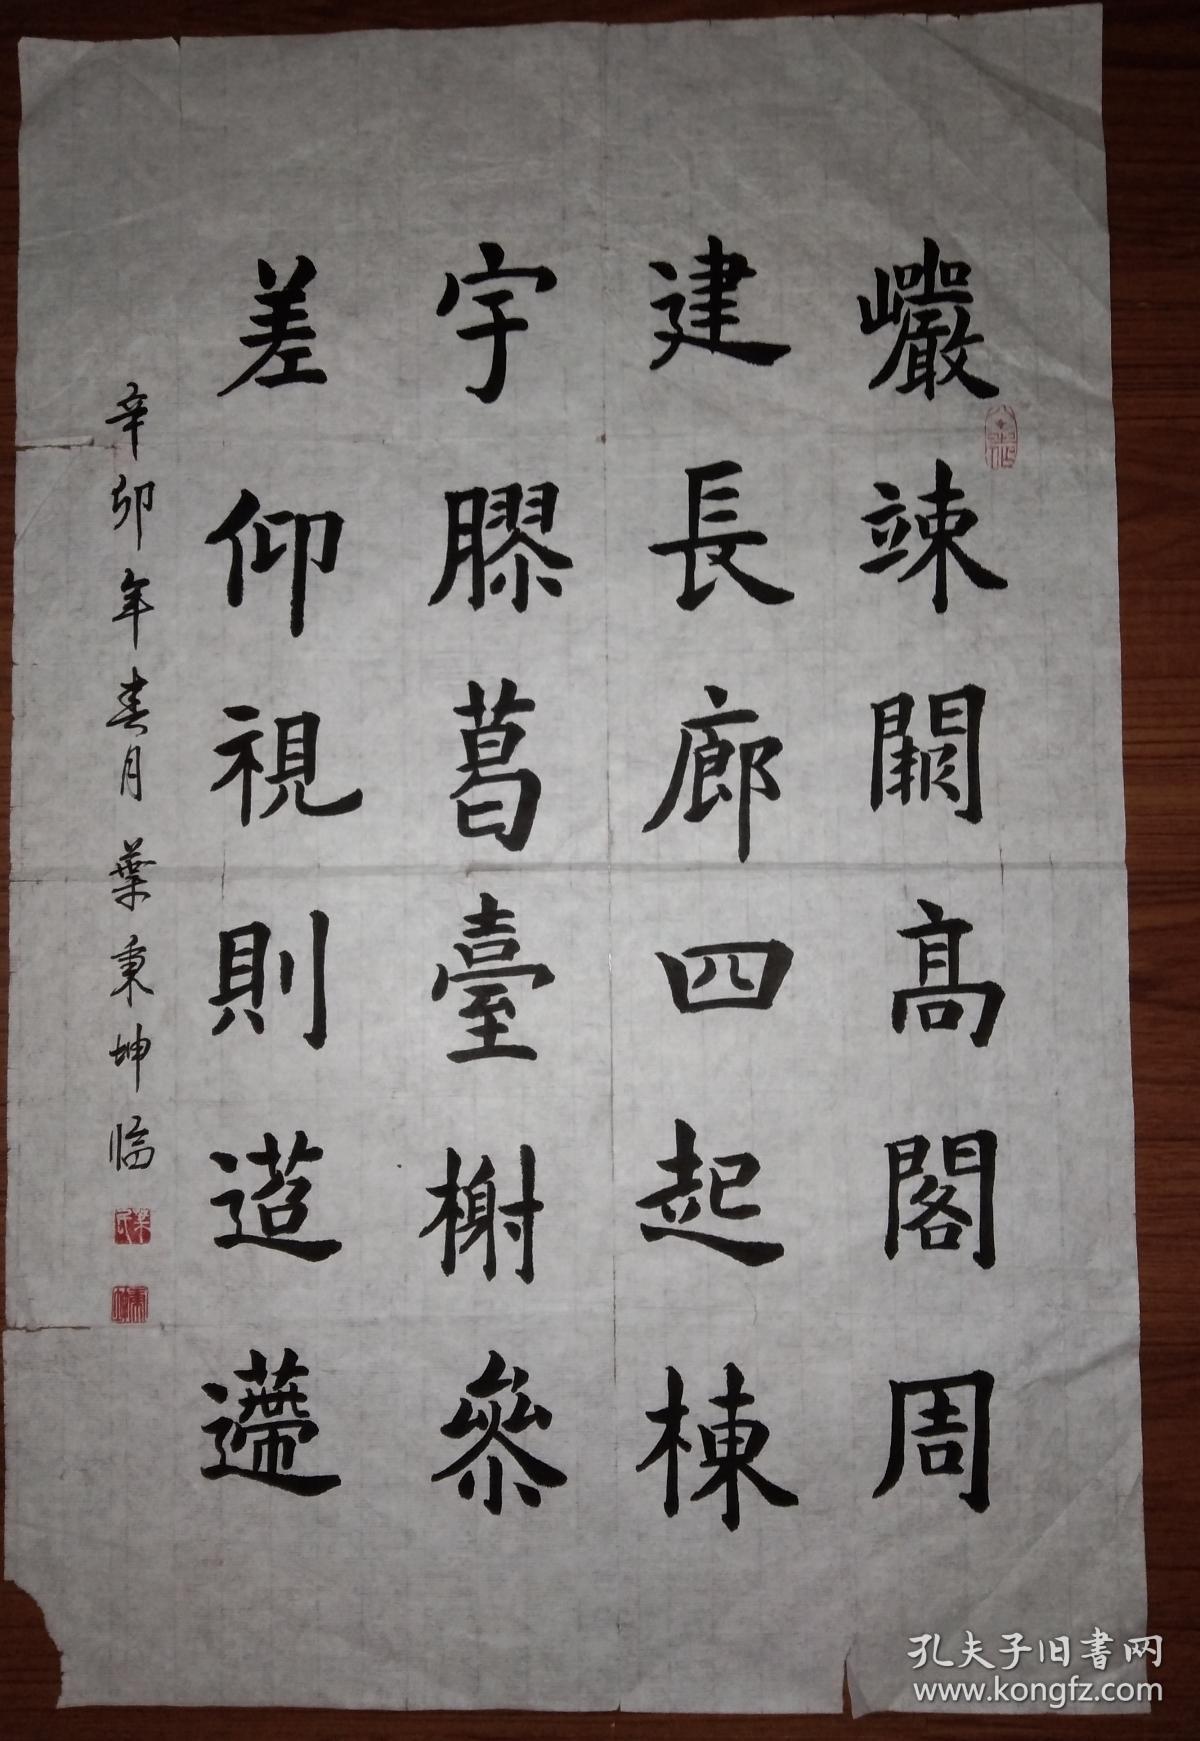 巗竦闕高閣周
建長廊四起棟
宇膠葛臺榭參
差仰視則迢遰
辛卯年春月葉秉坤临
孔夫子旧書网
www.kongfz.com